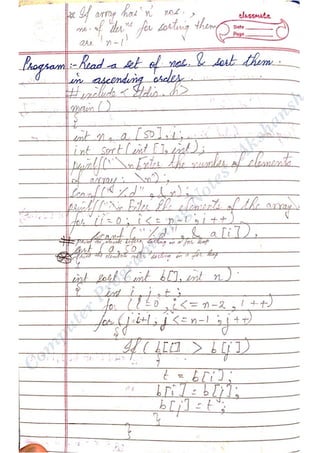 * If array has 'n' nos.,
no. of Iter^ns for sorting them
are 'n-1'
classmate
Date
Page
Program:- Read a set of nos. & sort them
in ascending order.
#include <stdio.h>
main()
{
int n, a[50], i;
int sort(int [], int);
printf("\nEnter the number of elements
of array: \n);
scanf("%d", &n);
printf("\n Enter the elements of the array
for (i=0; i<=n-1; i++)
scanf("%d", &a[i]);
sort(a, 50)
int sort(int b[], int n)
{ int i, j, t;
for (i=0, i<=n-2, i++)
for(j=i+1; j<=n-1; j++)
{
If (b[i] > b[j])
{
t = b[i];
b[i] = b[j];
b[j] = t;
}
}
Computer Notes Akshansh